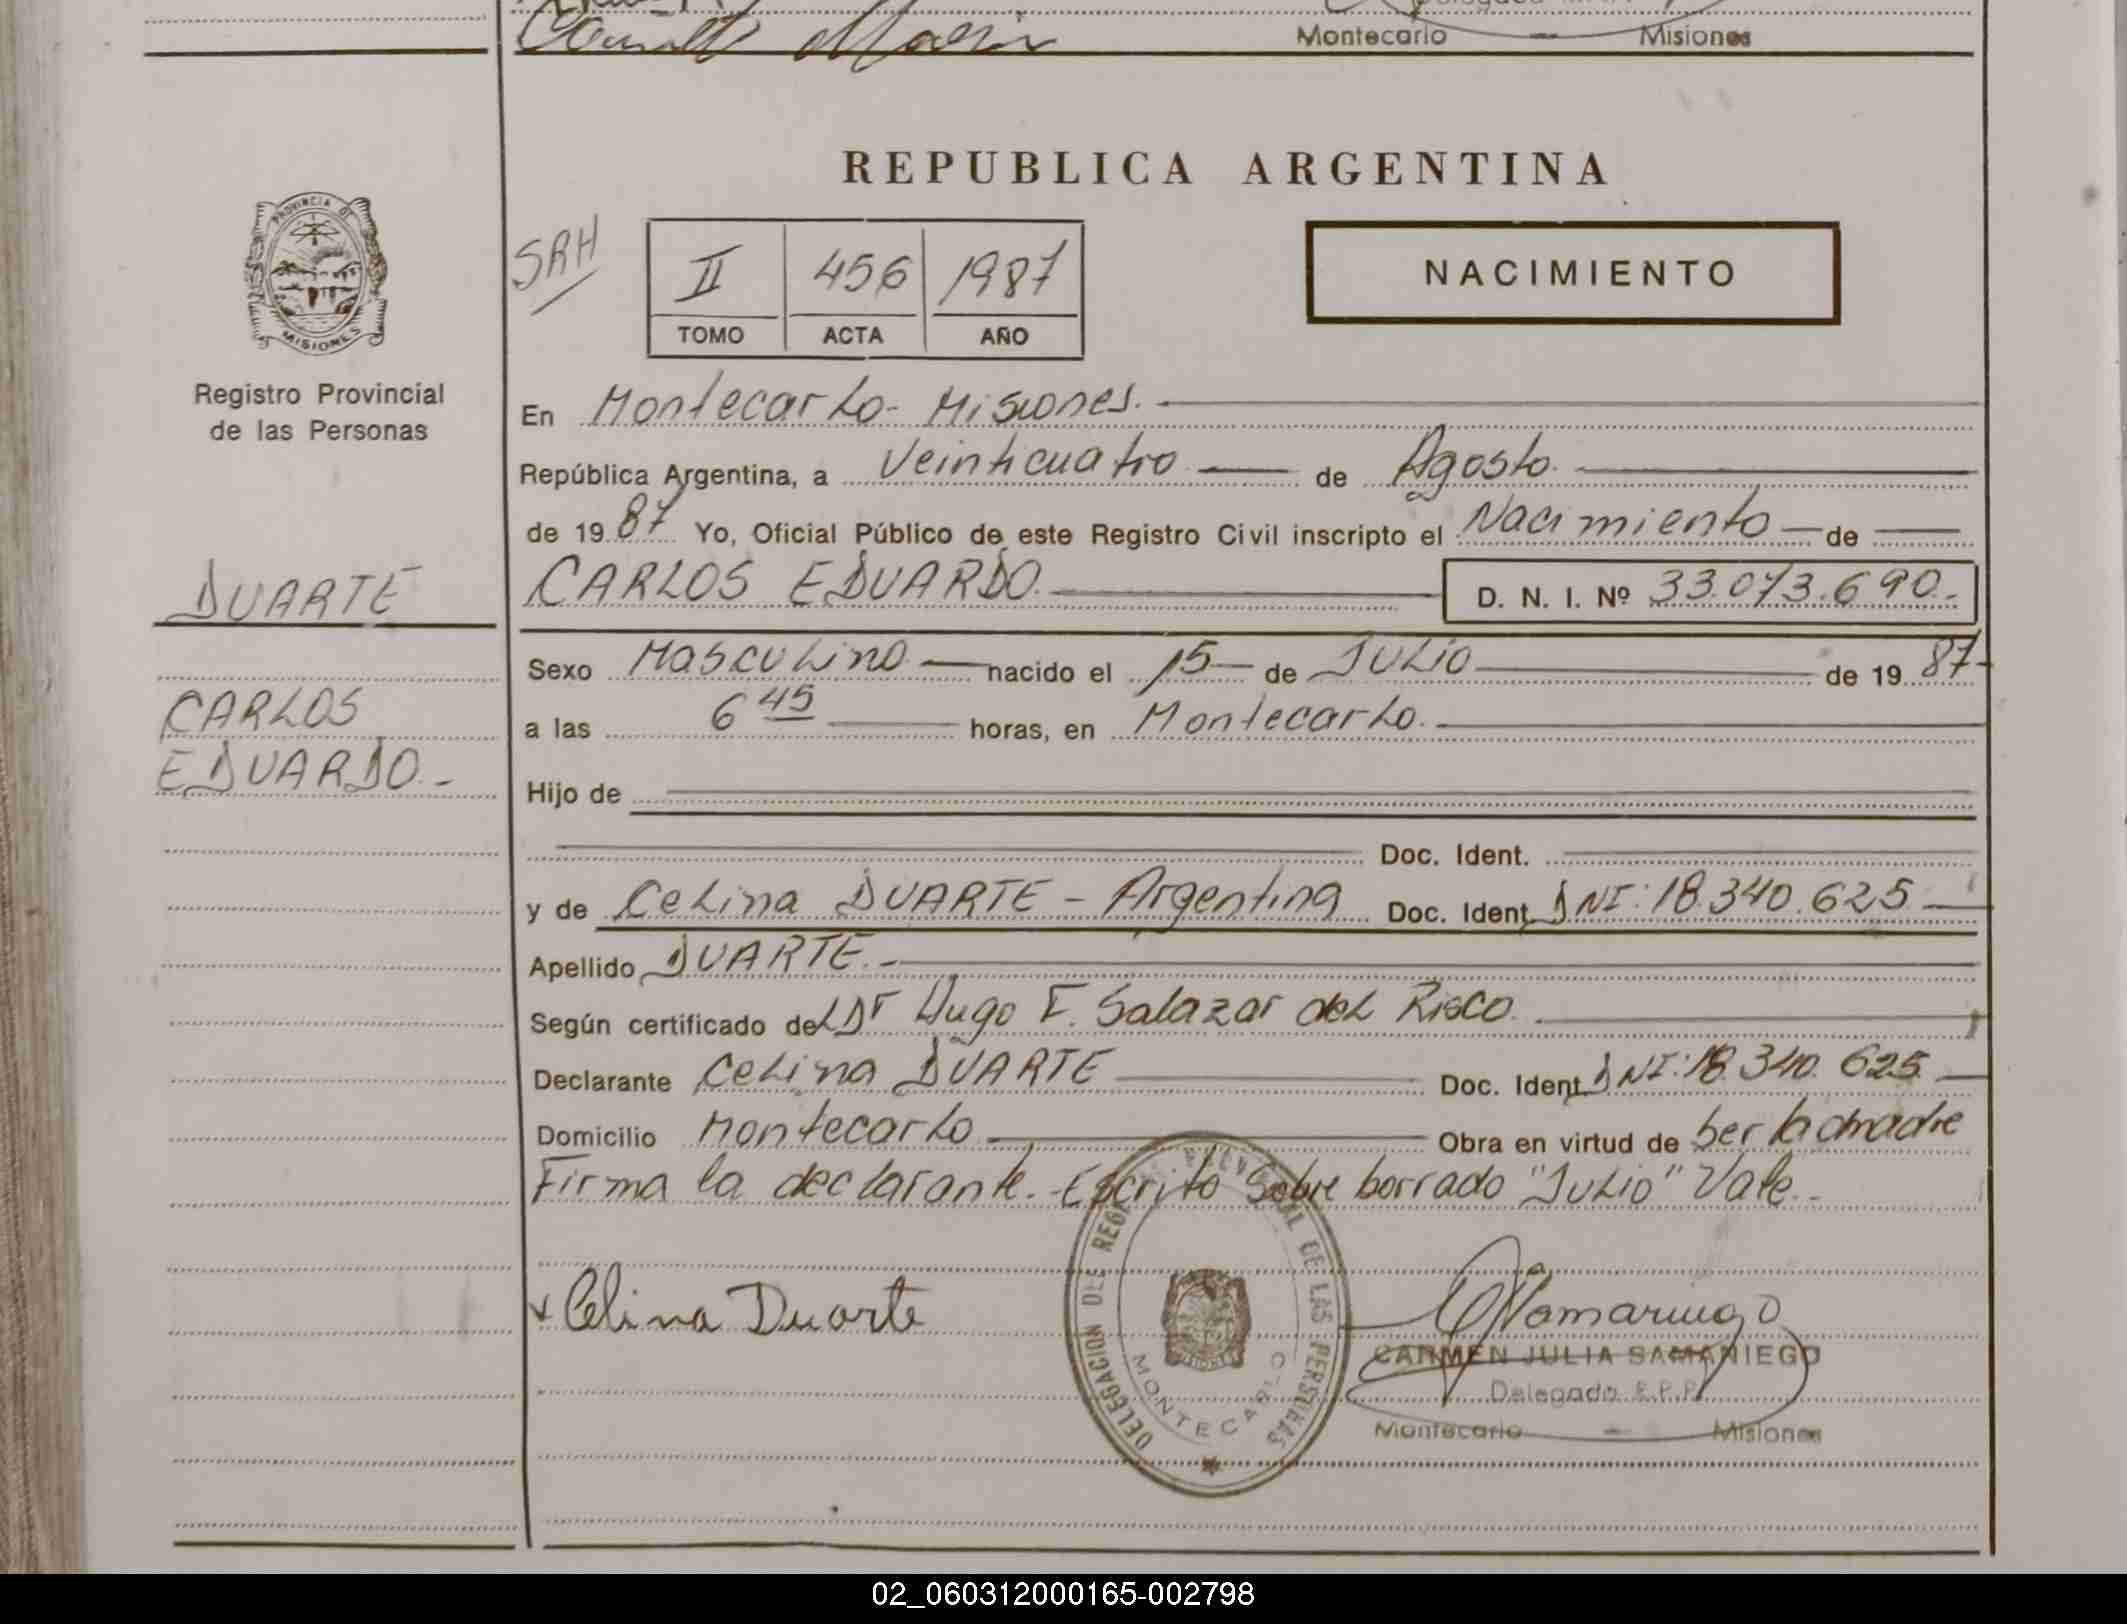 Montecarlo — Misiones
REPUBLICA ARGENTINA
PROVINCIA DE
MISIONES
Registro Provincial
de las Personas
SRH
II 456 1987
TOMO ACTA AÑO
NACIMIENTO
En Montecarlo - Misiones.
República Argentina, a Veinticuatro — de Agosto.
de 19 87 Yo, Oficial Público de este Registro Civil inscripto el Nacimiento — de —
DUARTE
CARLOS EDUARDO. D. N. I. Nº 33.073.690.-
Sexo Masculino — nacido el 15 — de Julio — de 19 87-
CARLOS
EDUARDO.-
a las 6 45 — horas, en Montecarlo.
Hijo de
Doc. Ident.
y de Celina DUARTE - Argentina Doc. Ident. DNI: 18.340.625 —
Apellido DUARTE.-
Según certificado del Dr Hugo F. Salazar del Risco.
Declarante Celina DUARTE — Doc. Ident. DNI: 18.340.625 —
Domicilio Montecarlo — Obra en virtud de ser la madre
Firma la declarante.- Escrito sobre borrado "Julio" Vale.-
Celina Duarte
DELEGACION DEL REGISTRO PROVINCIAL DE LAS PERSONAS
MONTECARLO
CARMEN JULIA SAMANIEGO
Delegado R.P.P.
Montecarlo — Misiones
02_060312000165-002798